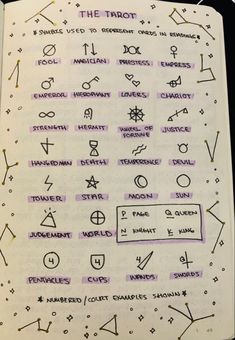 THE TAROT
* SYMBOLS USED TO REPRESENT CARDS IN READINGS *
FOOL MAGICIAN PRIESTESS EMPRESS
EMPEROR HIEROPHANT LOVERS CHARIOT
STRENGTH HERMIT WHEEL OF FORTUNE JUSTICE
HANGEDMAN DEATH TEMPERENCE DEVIL
TOWER STAR MOON SUN
JUDGEMENT WORLD
P PAGE Q QUEEN
N KNIGHT K KING
4 4 4
PENTACLES CUPS WANDS SWORDS
* NUMBERED / COURT EXAMPLES SHOWN *